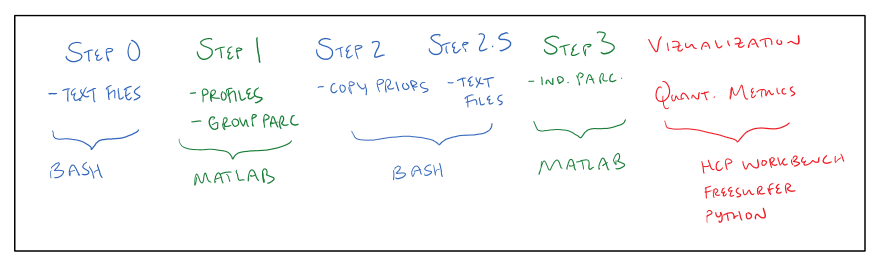 STEP 0
- TEXT FILES
BASH
STEP 1
- PROFILES
- GROUP PARC
MATLAB
STEP 2
- COPY PRIORS
STEP 2.5
- TEXT
FILES
BASH
STEP 3
- IND. PARC.
MATLAB
VIZUALIZATION
QUANT. METRICS
HCP WORKBENCH
FREESURFER
PYTHON